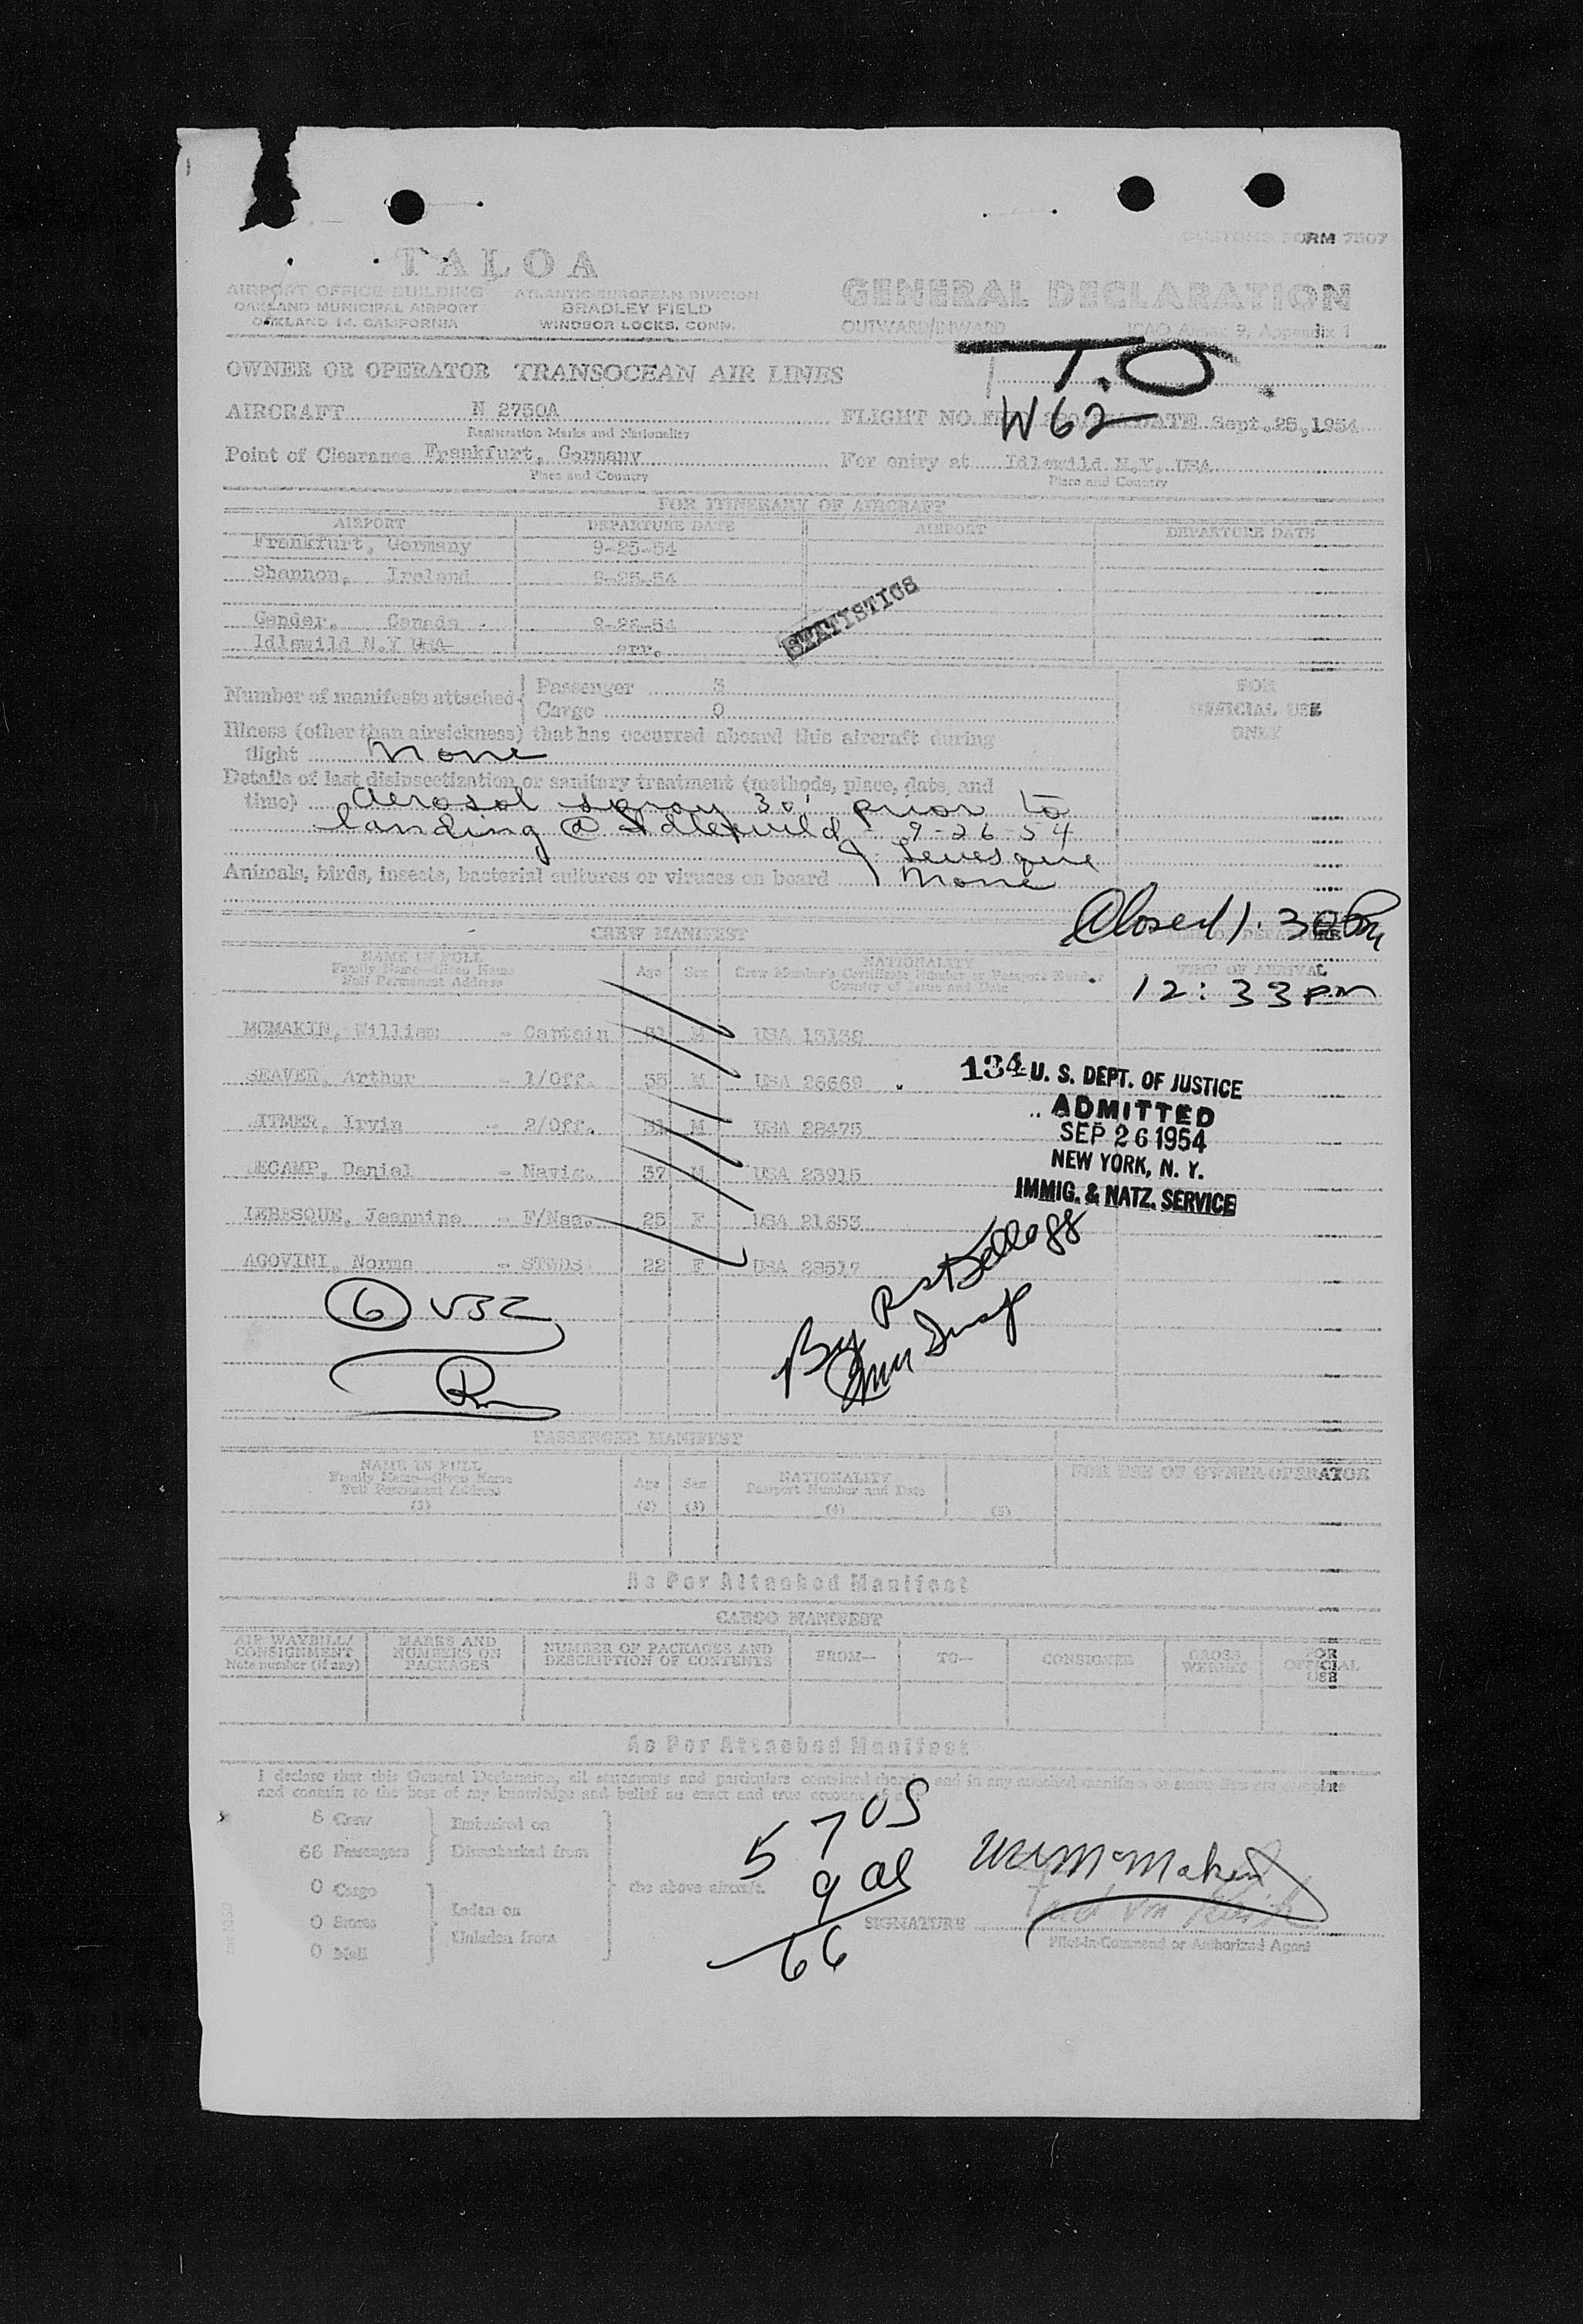 CUSTOMS FORM 7507
TALOA
AIRPORT OFFICE BUILDING
OAKLAND MUNICIPAL AIRPORT
OAKLAND 14, CALIFORNIA
ATLANTIC-EUROPEAN DIVISION
BRADLEY FIELD
WINDSOR LOCKS, CONN.
GENERAL DECLARATION
OUTWARD/INWARD ICAO Annex 9, Appendix 1
T.O
OWNER OR OPERATOR TRANSOCEAN AIR LINES
W62
AIRCRAFT N 2750A FLIGHT NO. DATE Sept. 25, 1954
Registration Marks and Nationality
Point of Clearance Frankfurt, Germany For entry at Idlewild N.Y. USA
Place and Country Place and Country
FOR ITINERARY OF AIRCRAFT
AIRPORT DEPARTURE DATE AIRPORT DEPARTURE DATE
Frankfurt, Germany 9-25-54
Shannon, Ireland 9-25-54
STATISTICS
Gander, Canada 9-26-54
Idlewild N.Y USA arr.
Number of manifests attached Passenger 3
Cargo 0
FOR
OFFICIAL USE
ONLY
Illness (other than airsickness) that has occurred aboard this aircraft during
flight None
Details of last disinsectization or sanitary treatment (methods, place, date, and
time) Aerosol spray 30' prior to
landing @ Idlewild - 9-26-54
J. Levesque
Animals, birds, insects, bacterial cultures or viruses on board None
Closed 1:30 Pm
CREW MANIFEST
NAME IN FULL
Family Name—Given Name
Full Permanent Address
Age Sex
NATIONALITY
Crew Member's Certificate Number or Passport Number
Country of Issue and Date
TIME OF ARRIVAL
12:33 pm
MCMAKIN, William - Captain M USA 13138
SEAVER, Arthur - 1/Off. 35 M USA 26669
ITMER, Irvin - 2/Off. 31 M USA 28475
ECAMP, Daniel - Navig. 37 M USA 23915
LEBESQUE, Jeannine - F/Nse. 25 F USA 21653
AGOVINI, Norma - STWDS 22 F USA 28517
134 U. S. DEPT. OF JUSTICE
ADMITTED
SEP 26 1954
NEW YORK, N. Y.
IMMIG. & NATZ. SERVICE
6 USC
By
Imm Insp
PASSENGER MANIFEST
NAME IN FULL
Family Name—Given Name
Full Permanent Address
(1)
Age
(2)
Sex
(3)
NATIONALITY
Passport Number and Date
(4) (5)
FOR USE OF OWNER-OPERATOR
As Per Attached Manifest
CARGO MANIFEST
AIR WAYBILL/
CONSIGNMENT
Note number (if any)
MARKS AND
NUMBERS ON
PACKAGES
NUMBER OF PACKAGES AND
DESCRIPTION OF CONTENTS
FROM— TO— CONSIGNEE
GROSS
WEIGHT
FOR
OFFICIAL
USE
As Per Attached Manifest
I declare that this General Declaration, all statements and particulars contained therein and in any attached manifests or are complete
and contain to the best of my knowledge and belief an exact and true account
6 Crew
66 Passengers
Embarked on
Disembarked from
0 Cargo
0 Stores
0 Mail
Laden on
Unladen from
the above aircraft.
57 US
9 al
66
Wm McMakin
SIGNATURE
Pilot-in-Command or Authorized Agent